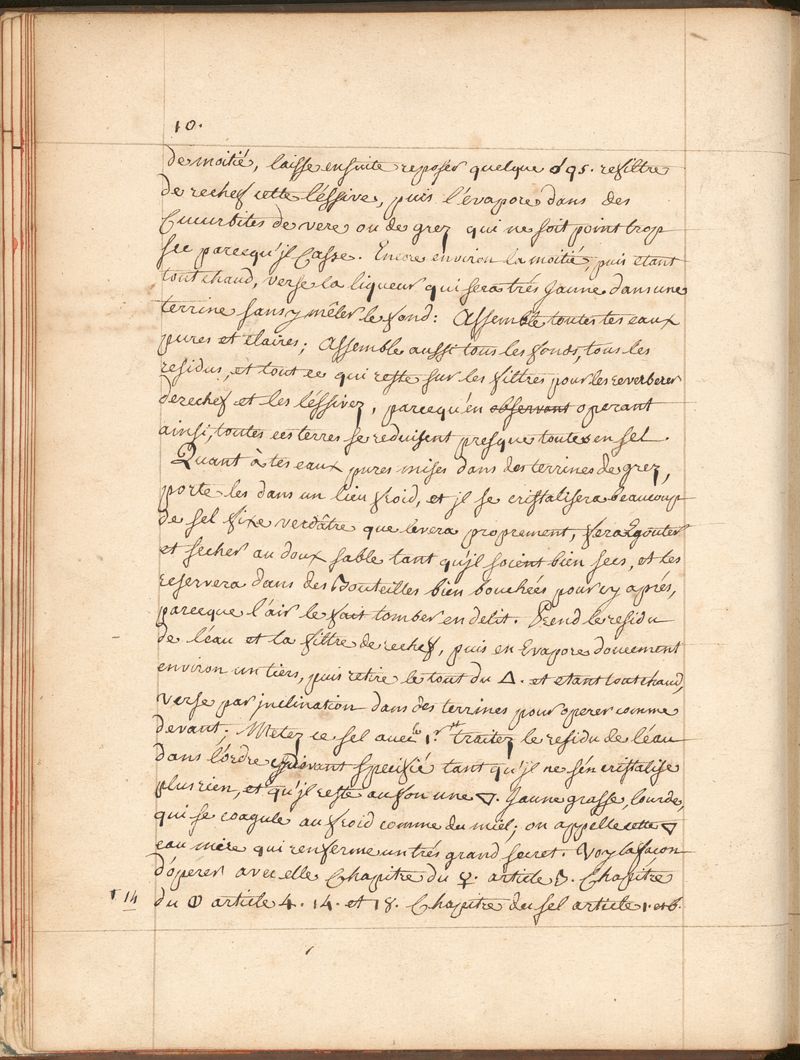 10.
de moitié, laisse ensuite reposer quelque refiltre
de rechef cette léssive, puis l'évapore dans des
Cucurbites de vere ou de grez qui ne soit point trop
sec parcequ'jl Casse. Encore environ la moitié, puis etant
tout chaud, verse la liqueur qui sera trés Jaune dans une
terrine sans y mêler le fond: Assemble toutes tes eaux
pures et claires; Assemble aussi tous les fonds, tous les
residus, et tout ce qui reste sur les filtres pour les reverberer
derechef et les léssivez, parcequ'en observant operant
ainsi, toutes ces terres se reduisent presque toutes en sel.
Quant à tes eaux pures mises dans des terrines de grez,
porte les dans un lieu froid, et jl se cristalisera beaucoup
de sel fixe verdâtre que levera proprement, fera Egouter
et secher au doux sable tant qu'jl soient bien secs, et les
reservera dans des Bouteilles bien bouchées pour cy aprés,
parceque l'air le fait tomber en delit. Prend le residu
de léau et la filtre derechef, puis en Evapore doucement
environ un tiers, puis retire le tout du 🜂. et etant tout chaud,
verse par jnclination dans des terrines pour operer comme
devant; Metez ce sel avec le 1.er et traitez le residu de léau
dans l'ordre cydevant specifié tant qu'jl ne s'én cristalise
plus rien, et qu'jl reste au fon une 🜄. Jaune grasse, lourde,
qui se coagule au froid comme du miel; on appelle cette 🜄
eau mére qui renferme un trés grand secret. Voy la façon
d'óperer avec elle Chapitre du ♀. article 5. Chapitre
du 🜕 article 4. 14. et 18. Chapitre du sel article 1. et 6.
14